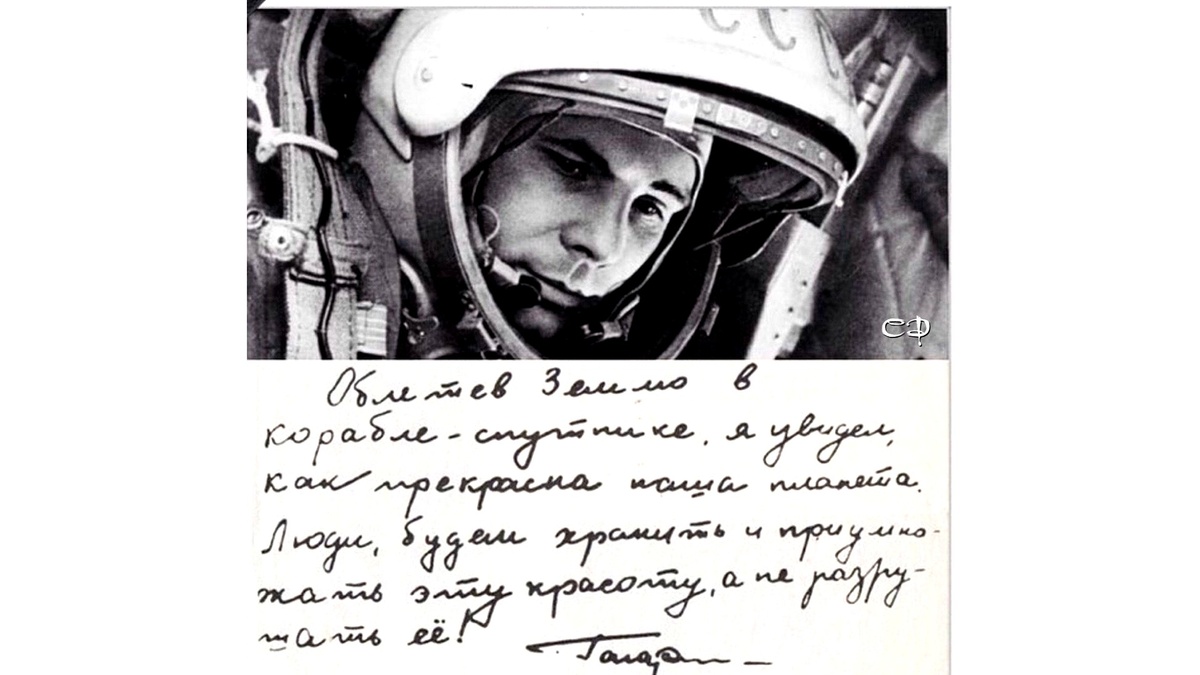 СС
СД
Облетев Землю в
корабле-спутнике, я увидел,
как прекрасна наша планета.
Люди, будем хранить и приумно-
жать эту красоту, а не разру-
шать её!
Гагарин